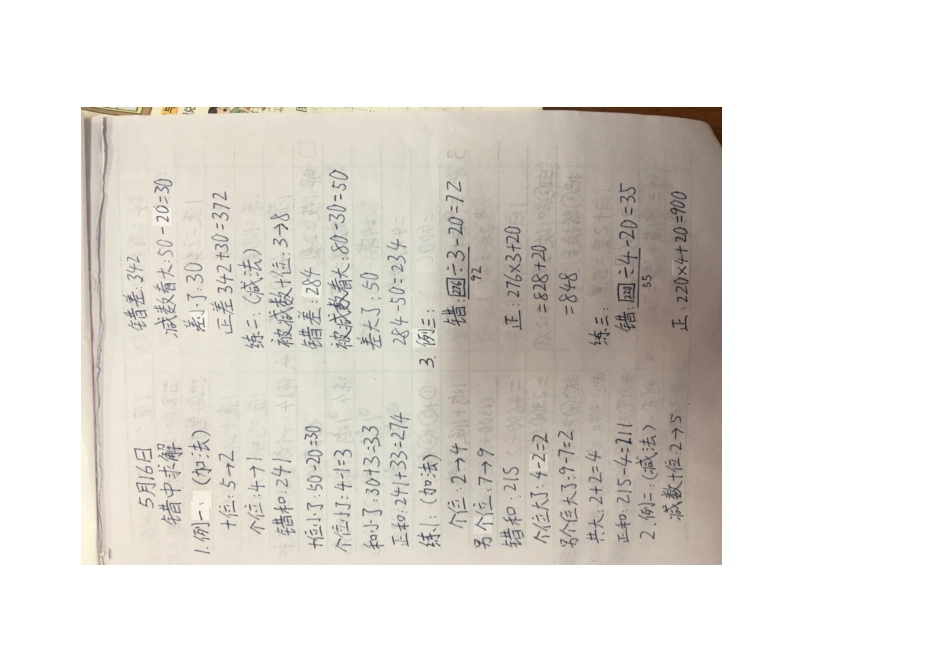 5月16日
错中求解
1.例一:(加法)
十位:5→2
个位:4→1
错和:241
十位小了:50-20=30
个位小了:4-1=3
和小了:30+3=33
正和:241+33=274
练1:(加法)
个位:2→4
另个位:7→9
错和:215
个位大了:4-2=2
另个位大了:9-7=2
共大:2+2=4
正和:215-4=211
2.例二:(减法)
减数十位:2→5
错差:342
减数看大:50-20=30
差小了:30
正差342+30=372
练二:(减法)
被减数十位:3→8
错差:284
被减数看大:80-30=50
差大了:50
284-50=234
3.例三:
错:276÷3-20=72
92
正:276×3+20
=828+20
=848
练三:
错:220÷4-20=35
55
正:220×4+20=900